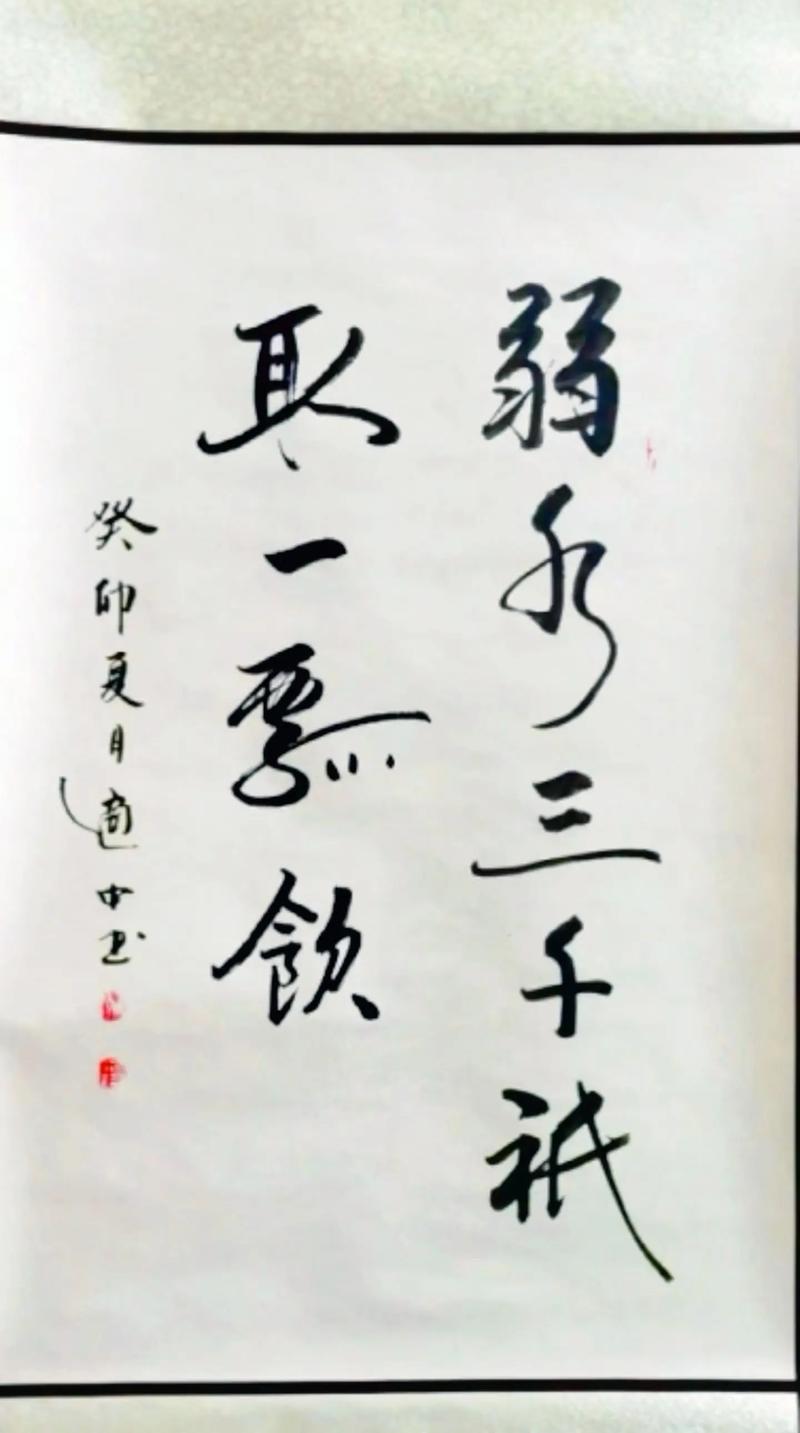 弱水三千祇
取一瓢飲
癸卯夏月適中书